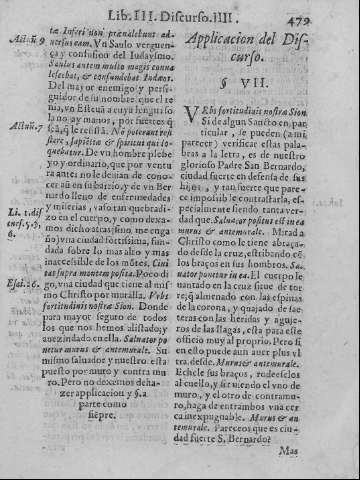 Lib. III. Discurso. IIII.
479
Actuũ. 9
tæ Inferi non præualebunt ad-
uersus eam. Vn Saulo verguen-
ça y confusion del Iudaysmo.
Saulus autem multo magis conua
lescebat, & confundebat Iudæos.
Del mayor enemigo y perse-
guidor de su nombre que el te
nia, vn Esteuã a cuya lengua
no ay manos, por fuertes q̃
seã, q̃ le resistã. Nõ poterant resi
Actuũ. 7
stere, sapiẽtia & spiritui qui lo-
quebatur. De vn hombre plebe-
yo y ordinario, que por ventu
ra antes no le deuian de cono-
cer aũ en su barrio, y de vn Ber-
nardo lleno de enfermedades
y miserias, vasõ tan quebradi-
zo en el cuerpo, y como dexa-
Li. 1. dis
curs. 5. §.
8.
mos dicho atras (sino me enga-
ño) vna ciudad fortissima, fun-
dada sobre lo mas alto y mas
inaccesible de los mõtes. Ciui
tas supra montem posita. Poco di-
Esai. 26.
go, vna ciudad que tiene al mis-
mo Christo por muralla. Vrbs
fortitudinis nostræ Sion. Donde
para mayor seguro de todos
los que nos hemos alistado, y
auezindado en ella. Saluator po
netur murus & antemurale. Su
mismo saluador y nuestro: esta
puesto por muro y contra mu
ro. Pero no dexemos desha-
zer applicacion y §. a
parte como
siẽpre.
Applicacion del Dis-
curso.
§ VII.
VRbs fortitudinis nostra Sion.
Si de algun Sancto en par-
ticular, se pueden (a mi
parecer) verificar estas pala-
bras a la letra, es de nuestro
glorioso Padre San Bernardo,
ciudad fuerte en defensa de sus
hijos, y tan fuerte que pare-
ce impossible contrastarla, es-
pecialmente siendo tanta ver-
dad que Saluator positus est in ea
murus & antemurale. Mirad a
Christo como le tiene abraça-
do desde la cruz, estribando cõ
los braços en sus hombros. Sal
uator ponetur in ea. El cuerpo le
uantado en la cruz sirue de tor
re, q̃ almenado con las espinas
de la corona, y quajado de fac-
teras con las heridas y aguje-
ros de las llagas, esta para este
officio muy al proprio. Pero si
en esto puede aun auer plus vl
tra, desde. Murus & antemurale.
Echele sus braços, rodeeselos
al cuello, y siruiendo el vno de
muro, y el otro de contramu-
ro, haga de entrambos vna cer
ca inexpugnable. Murus & an
temurale. Pareceos que es ciu-
dad fuerte S. Bernardo?
Mas